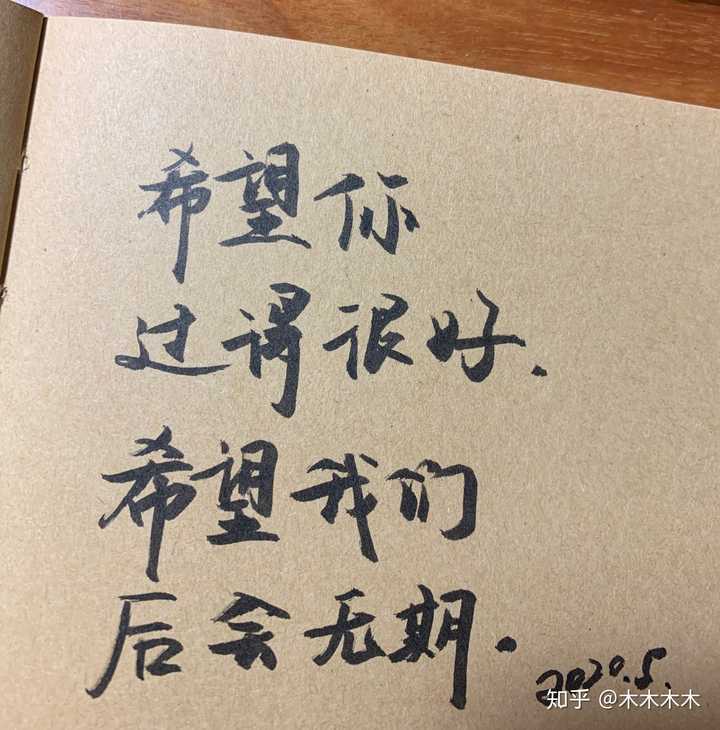 希望你
过得很好.
希望我们
后会无期.
2020.5.
知乎 @木木木木